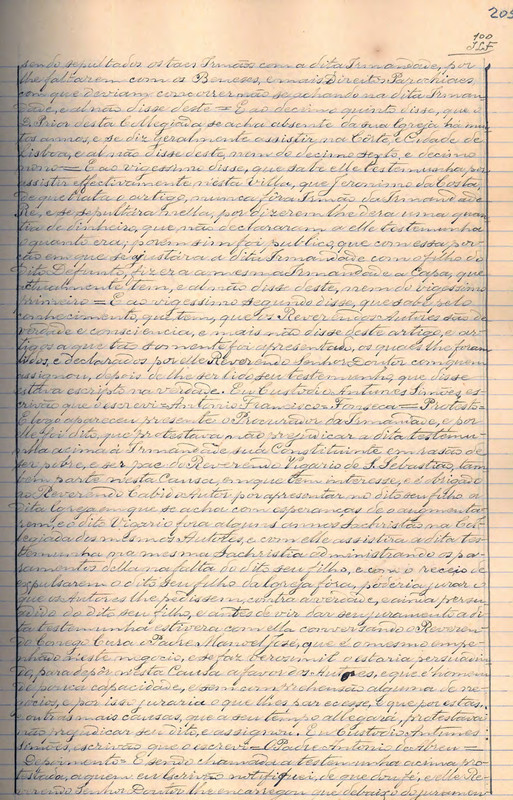 205
100
sendo sepultados os taes Irmãos com a dita Irmandade, por
lhe faltarem com os Beneses, e mais Direitos Parochiaes
com que deviam concorrer não se achando na dita Irman-
dade, e al não disse deste = E ao decimo quinto disse, que o
D. Prior desta Collegiada se acha absente da sua Igreja há mui-
tos annos, e se diz geralmente assistir, na Côrte, e Cidade de
Lisboa, e al não disse deste, nem do decimo sexto, e decimo
nono = E ao vigessimo disse, que sabe elle testemunha por
assistir effectivamente nesta Villa, que Jeronimo da Costa,
de que trata o artigo, nunca fôra Irmão da Irmandade
Ré, e se sepultára nella, por dizerem lhe dera uma quan-
tia de dinheiro, que não declararam a elle testemunha
o quanto era, porem sim foi publico, que com essa por-
ção em que se ajustára a dita Irmandade com o filho do
dito Defunto, fizera a mesma Irmandade a Capa, que
actualmente tem, e al não disse deste, nem do vigessimo
primeiro = E ao vigessimo segundo disse, que sabe pelo
conhecimento, que tem, que os Reverendos Autores são de
verdade e consciencia, e mais não disse deste artigo, e ar-
tigos a que tão somente foi apresentado, os quaes lhe foram
lidos, e declarados por elle Reverendo Senhor Doutor com quem
assignou, depois de lhe ser lido seu testemunho, que disse
estava escripto na verdade. Eu Custodio Antunes Simões, es-
crivão que o escrevi = Antonio Francisco = Fonseca = Protesto =
E logo appareceu presente o Procurador da Irmandade, e por
elle foi dito, que protestava não prejudicar a dita testemu-
nha acima á Irmandade sua Constituinte em rasão de
ser pobre, e ser pae do Reverendo Vigario de S. Sebastião, tam-
bem parte nesta Causa, em que tem interesse, e é obrigado
ao Reverendo Cabido Autor por apresentar no dito seu filho a
dita Igreja em que se achou com esperanças de o augmenta-
rem, e o dito Vigario fôra alguns annos Sachristão na Col-
legiada dos mesmos Autores, e com elle assistira a dita tes-
temunha na mesma Sachristia administrando os pa-
ramentos della na falta do dito seu filho, e com o receio de
expulsarem o dito seu filho da Igreja fóra, poderia jurar o
que os Autores lhe pedissem, contra a verdade, e ainda persu-
adido do dito seu filho, e antes de vir dar seu juramento a di-
ta testemunha estivera com ella conversando o Reveren-
do Conego Cura o Padre Manoel José, que é o mesmo empe-
nhado neste negocio, e se faz verosimil o estaria persuadin-
do, para depôr nesta Causa a favor dos Autores, e que é homem
de pouca capacidade, e sem comprehensão alguma de ne-
gocios, e por isso juraria o que lhes parecesse, e que por estas,
e outras mais causas, que a seu tempo allegará, protestava
não prejudicar seu dito, e assignou. Eu Custodio Antunes
Simões, escrivão que o escrevi = O Padre Antonio de Abreu =
Depoimento = E sendo chamada a testemunha acima pro-
testada, a quem eu Escrivão notifiquei, de que dou fé, e elle Re-
verendo Senhor Doutor lhe encarregou que debaixo do juramen-